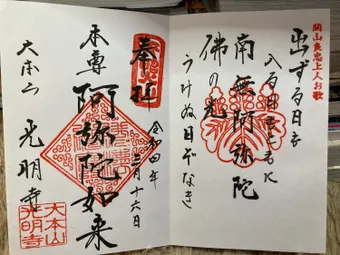 開山良忠上人お歌
出ずる日も
入る日もともに
南無阿弥陀
佛の光
うけぬ日ぞなき
奉拝
令和四年
三月十六日
本尊
阿弥陀如来
大本山
光明寺
大本山
光明寺